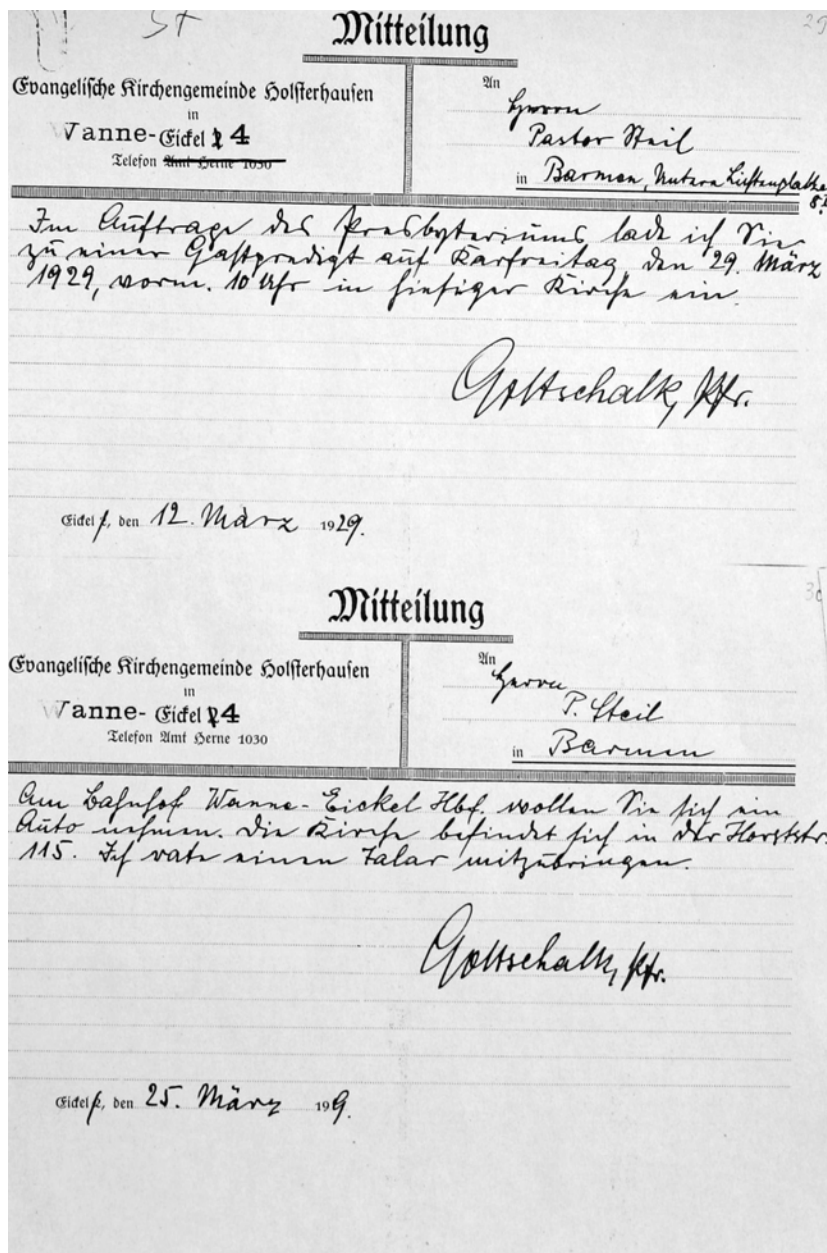 St
29
Mitteilung
Evangelische Kirchengemeinde Holsterhausen
in
Wanne-Eickel 4
Telefon Amt Herne 1030
An
Herrn
Pastor Steil
in Barmen, Untere Lichtenplatzer
Im Auftrage des Presbyteriums lade ich Sie
zu einer Gastpredigt auf Karfreitag, den 29. März
1929, vorm. 10 Uhr in hiesiger Kirche ein.
Gottschalk, Pfr.
Eickel, den 12. März 1929.
30
Mitteilung
Evangelische Kirchengemeinde Holsterhausen
in
Wanne-Eickel 4
Telefon Amt Herne 1030
An
Herrn
P. Steil
in Barmen
Am Bahnhof Wanne-Eickel Hbf. wollen Sie sich ein
Auto nehmen. Die Kirche befindet sich in der Horststr.
115. Ich rate einen Talar mitzubringen.
Gottschalk, Pfr.
Eickel, den 25. März 199.